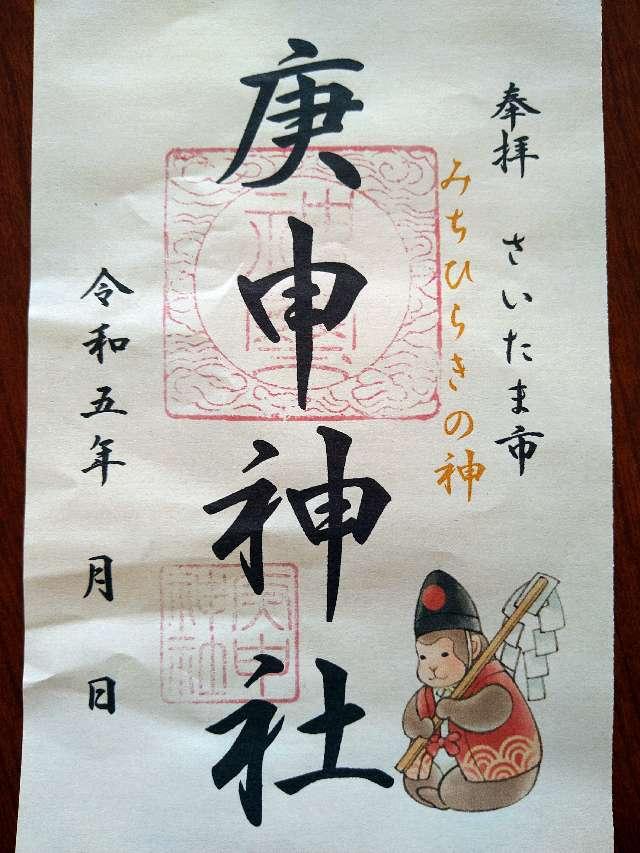 奉拝 さいたま市
みちひらきの神
庚申神社
令和五年 月 日
庚申
神社